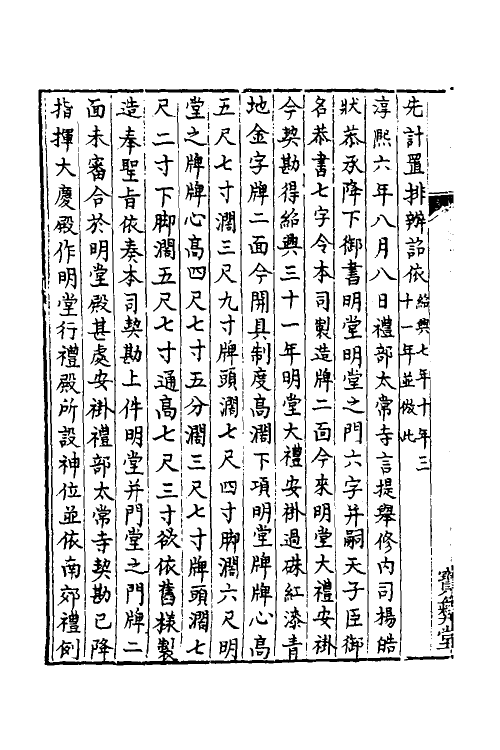 先計置排辨詔依紹興七年十年三十一年並倣此
淳熙六年八月八日禮部太常寺言提舉修内司楊皓
狀恭承降下御書明堂明堂之門六字并嗣天子臣御
名恭書七字令本司製造牌二面今來明堂大禮安掛
今契勘得紹興三十一年明堂大禮安掛過硃紅漆青
地金字牌二面今開具制度高濶下項明堂牌牌心高
五尺七寸濶三尺九寸牌頭濶七尺四寸脚濶六尺明
堂之牌牌心高四尺七寸五分濶三尺七寸牌頭濶七
尺二寸下脚濶五尺七寸通高七尺三寸欲依舊樣製
造奉聖旨依奏本司契勘上件明堂并門堂之門牌二
面未審合於明堂殿甚處安掛禮部太常寺契勘已降
指揮大慶殿作明堂行禮殿所設神位並依南郊禮例